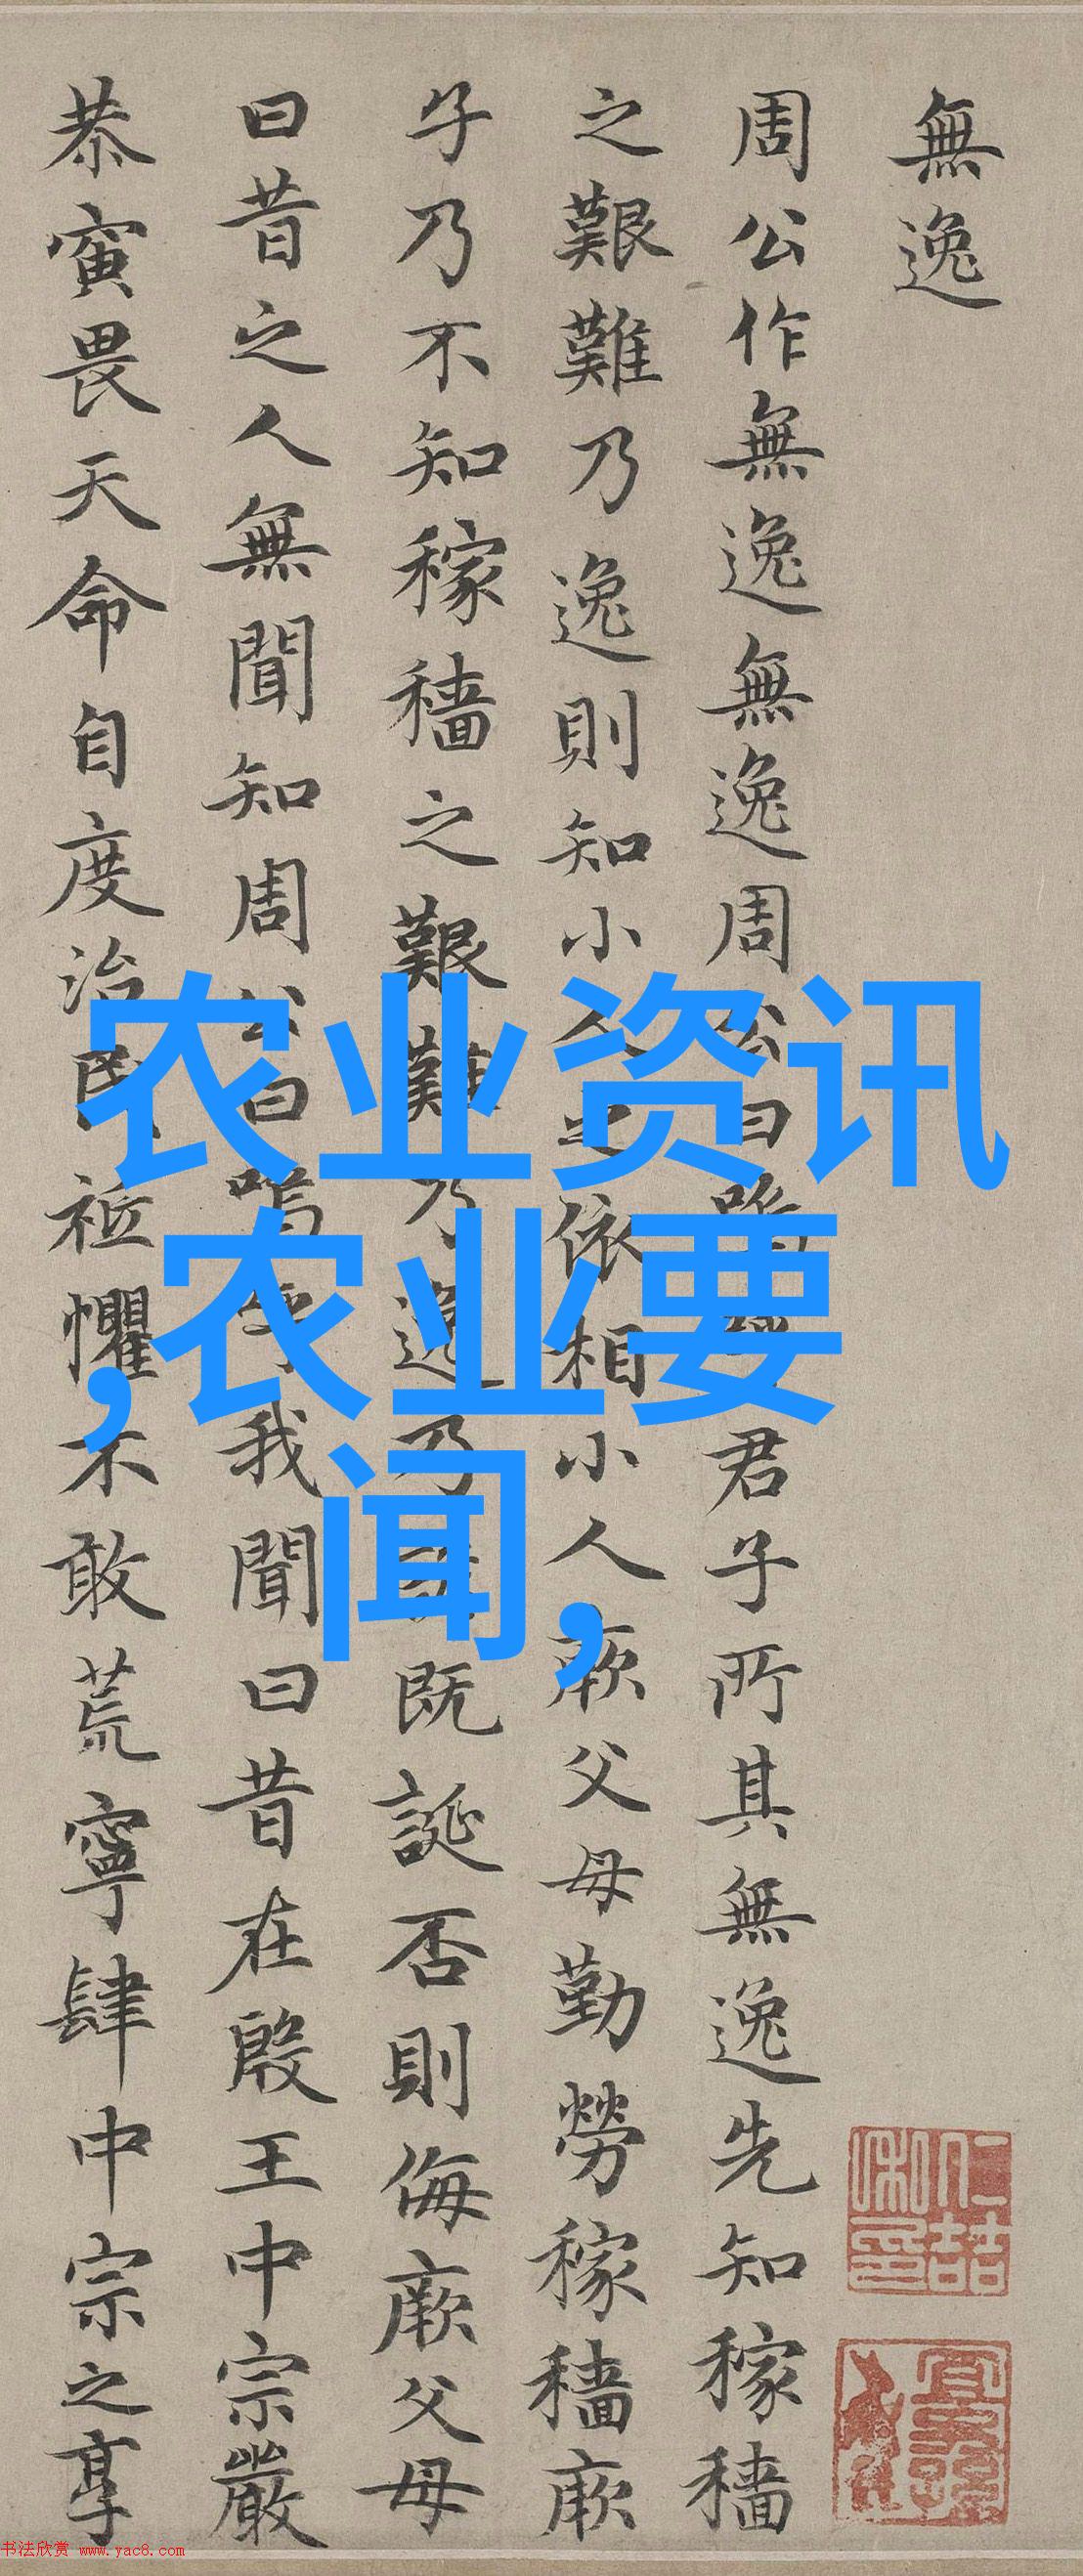 無逸
周公作無逸無逸周公曰嗚君子所其無逸先知稼穡
之艱難乃逸則知小人之依相小人厥父母勤勞稼穡厥
子乃不知稼穡之艱難乃逸乃既誕否則侮厥父母
曰昔之人無聞知周公曰嗚呼我聞曰昔在殷王中宗嚴
恭寅畏天命自度治民祗懼不敢荒寧肆中宗之享
农业资讯
,农业要
闻,
书法欣赏 www.yac8.com